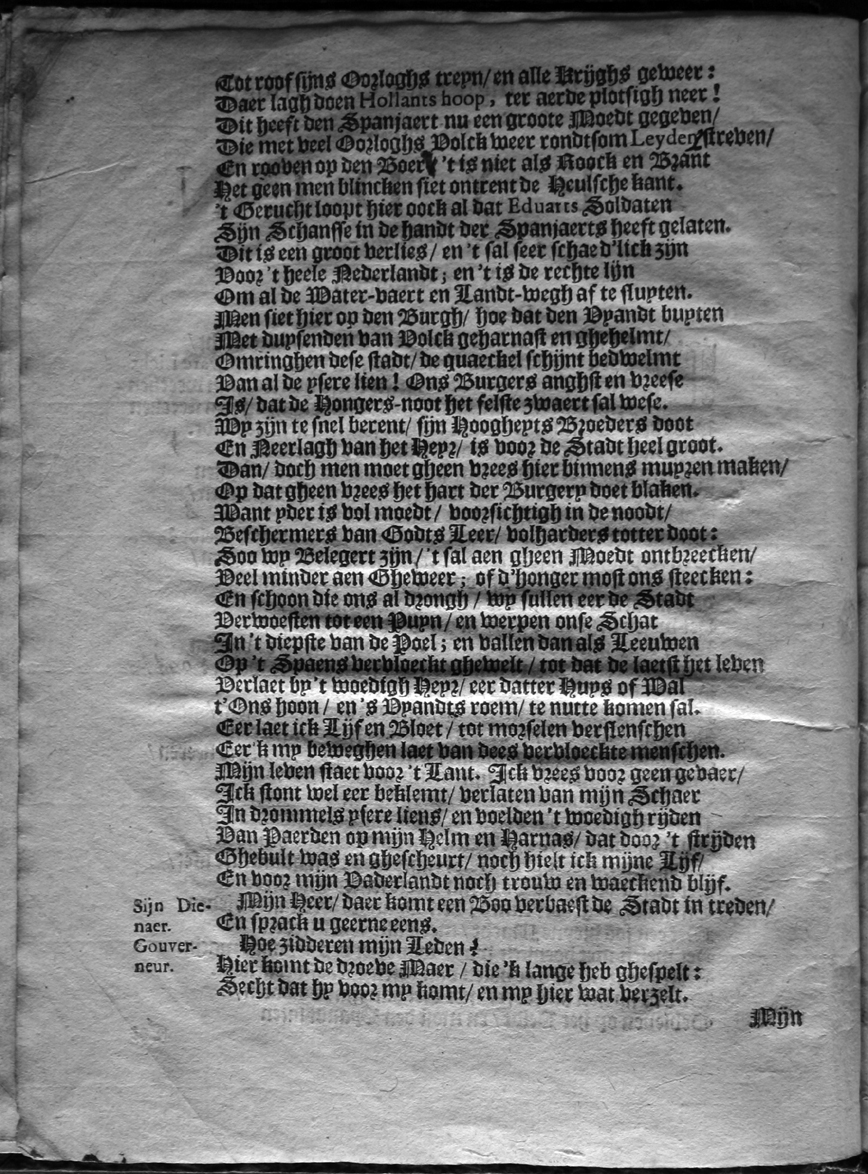 Tot roof sijns Oorloghs treyn/ en alle Krijghs geweer:
Daer lagh doen Hollants hoop, ter aerde plotsigh neer!
Dit heeft den Spanjaert nu een groote Moedt gegeven/
Die met veel Oorloghs Volck weer rondtsom Leyden streven/
En rooven op den Boer 't is niet als Roock en Brant
Het geen men blincken siet ontrent de Heulsche kant.
't Gerucht loopt hier oock al dat Eduarts Soldaten
Sijn Schansse in de handt der Spanjaerts heeft gelaten.
Dit is een groot verlies/ en 't sal seer schaed'lick zijn
Voor 't heele Nederlandt; en 't is de rechte lijn
Om al de Water-vaert en Landt-wegh af te sluyten.
Men siet hier op den Burgh/ hoe dat den Vyandt buyten
Met duysenden van Volck geharnast en ghehelmt/
Omringhen dese stadt/ de quaeckel schijnt bedwelmt
Van al de ysere lien! Ons Burgers anghst en vreese
Is/ dat de Hongers-noot het felste zwaert sal wese.
Wy zijn te snel berent/ sijn Hoogheyts Broeders doot
En Neerlagh van het Heyr/ is voor de Stadt heel groot.
Dan/ doch men moet gheen vrees hier binnens muyren maken/
Op dat gheen vrees het hart der Burgery doet blaken.
Want yder is vol moedt/ voorsichtigh in de noodt/
Beschermers van Godts Leer/ volharders totter doot:
Soo wy Belegert zijn/ 't sal aen gheen Moedt ontbreecken/
Veel minder aen Gheweer; of d'honger most ons steecken:
En schoon die ons al drongh/ wy sullen eer de Stadt
Verwoesten tot een Puyn/ en werpen onse Schat
In 't diepste van de Poel; en vallen dan als Leeuwen
Op 't Spaens vervloeckt ghewelt/ tot dat de laetst het leven
Verlaet by 't woedigh Heyr/ eer datter Huys of Wal
t'Ons hoon/ en 's Vyandts roem/ te nutte komen sal.
Eer laet ick Lijf en Bloet/ tot morselen verslenschen
Eer'k my beweghen laet van dees vervloeckte menschen.
Mijn leven staet voor 't Lant. Ick vrees voor geen gevaer/
Ick stont wel eer beklemt/ verlaten van mijn Schaer
In drommels ysere liens/ en voelden 't woedigh rijden
Van Paerden op mijn Helm en Harnas/ dat door 't strijden
Ghebult was en ghescheurt/ noch hielt ick mijne Lijf/
En voor mijn Vaderlandt noch trouw en waeckend blijf.
Sijn Die- Mijn Heer/ daer komt een Boo verbaest de Stadt in treden/
naer. En sprack u geerne eens.
Gouver- Hoe zidderen mijn Leden!
neur. Hier komt de droeve Maer/ die 'k lange heb ghespelt:
Secht dat hy voor my komt/ en my hier wat verzelt.
Mijn